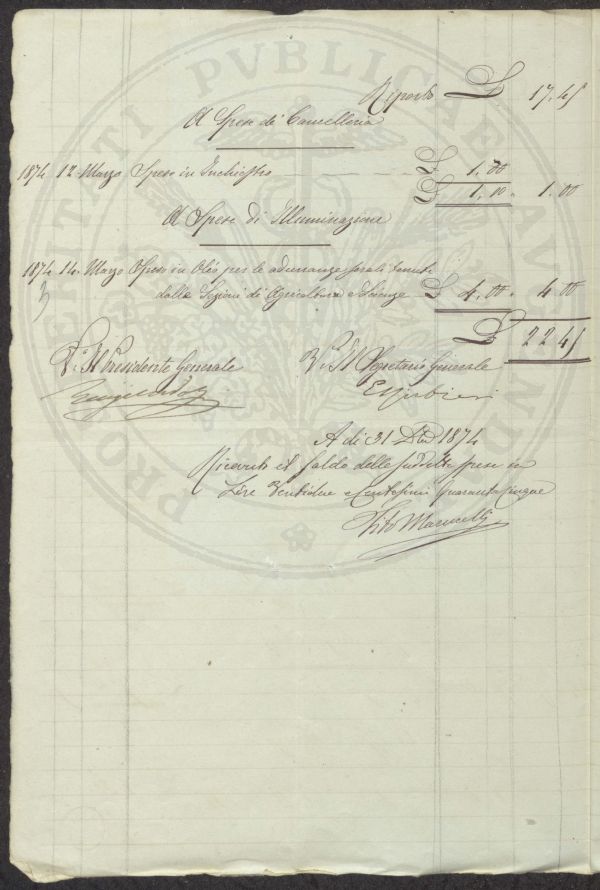 Riporto L 17.45
A Spese di Cancelleria
1874 12 Marzo Spese in Inchiostro L. 1.00
L 1.00 " 1.00
A Spese di Illuminazione
1874 14 Marzo Spese in Olio per le adunanze serali tenute
dalle Sezioni di Agricoltura e Scienze L 4.00 " 4.00
L 22 45
V. Il Presidente Generale V. Il Segretario Generale
A di 31 1874
Ricevuto il saldo delle suddette spese in
Lire Ventidue e Centesimi Quarantacinque
Vito
PROSPERITATI PVBLICAE AVGENDAE